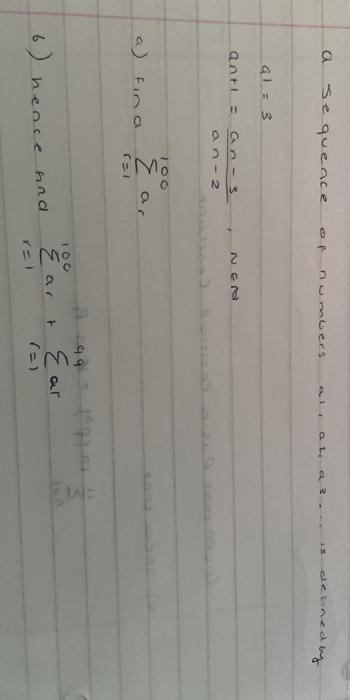 a sequence of numbers a1, a2, a3... is defined by
a1 = 3
an+1 = an - 3 / an - 2 , NEN
a) find 100 Σ r=1 ar
b) hence find 100 Σ r=1 ar + 99 Σ r=1 ar